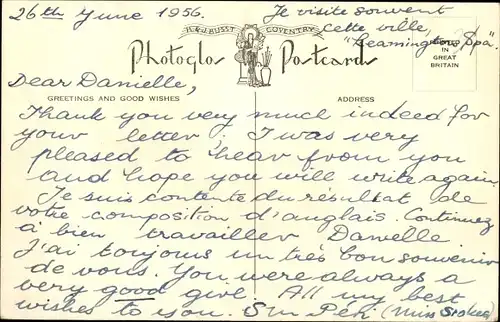 26th June 1956.
Je visite souvent
cette ville,
"Leamington Spa".
H. & J. BUSST COVENTRY
Photoglos Postcards
IN
GREAT
BRITAIN
GREETINGS AND GOOD WISHES
ADDRESS
Dear Danielle,
Thank you very much indeed for
your letter; I was very
pleased to hear from you
and hope you will write again
Je suis contente du résultat de
votre composition d'anglais. Continuez
à bien travailler Danielle
J'ai toujours un très bon souvenir
de vous. You were always a
very good girl. All my best
wishes to you. (Miss